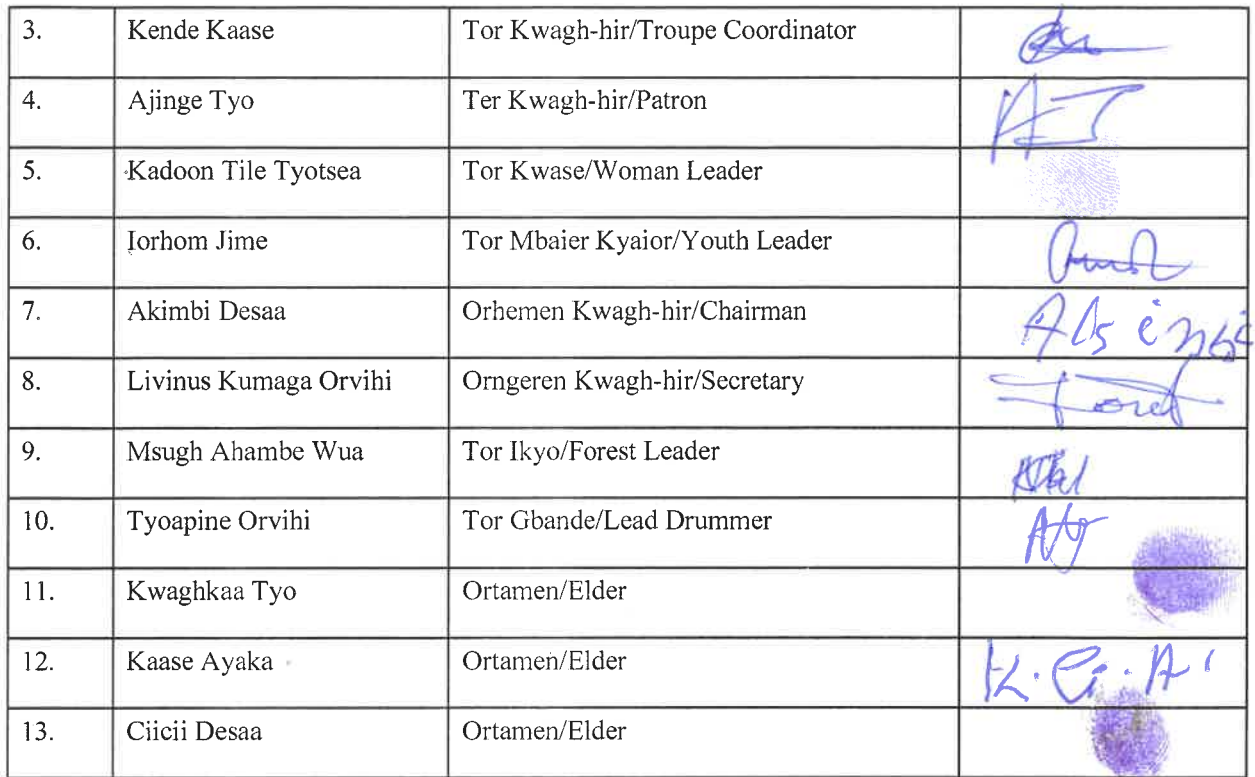 3. Kende Kaase Tor Kwagh-hir/Troupe Coordinator
4. Ajinge Tyo Ter Kwagh-hir/Patron
5. Kadoon Tile Tyotsea Tor Kwase/Woman Leader
6. Iorhom Jime Tor Mbaier Kyaior/Youth Leader
7. Akimbi Desaa Orhemen Kwagh-hir/Chairman
8. Livinus Kumaga Orvihi Orngeren Kwagh-hir/Secretary
9. Msugh Ahambe Wua Tor Ikyo/Forest Leader
10. Tyoapine Orvihi Tor Gbande/Lead Drummer
11. Kwaghkaa Tyo Ortamen/Elder
12. Kaase Ayaka Ortamen/Elder
13. Ciicii Desaa Ortamen/Elder